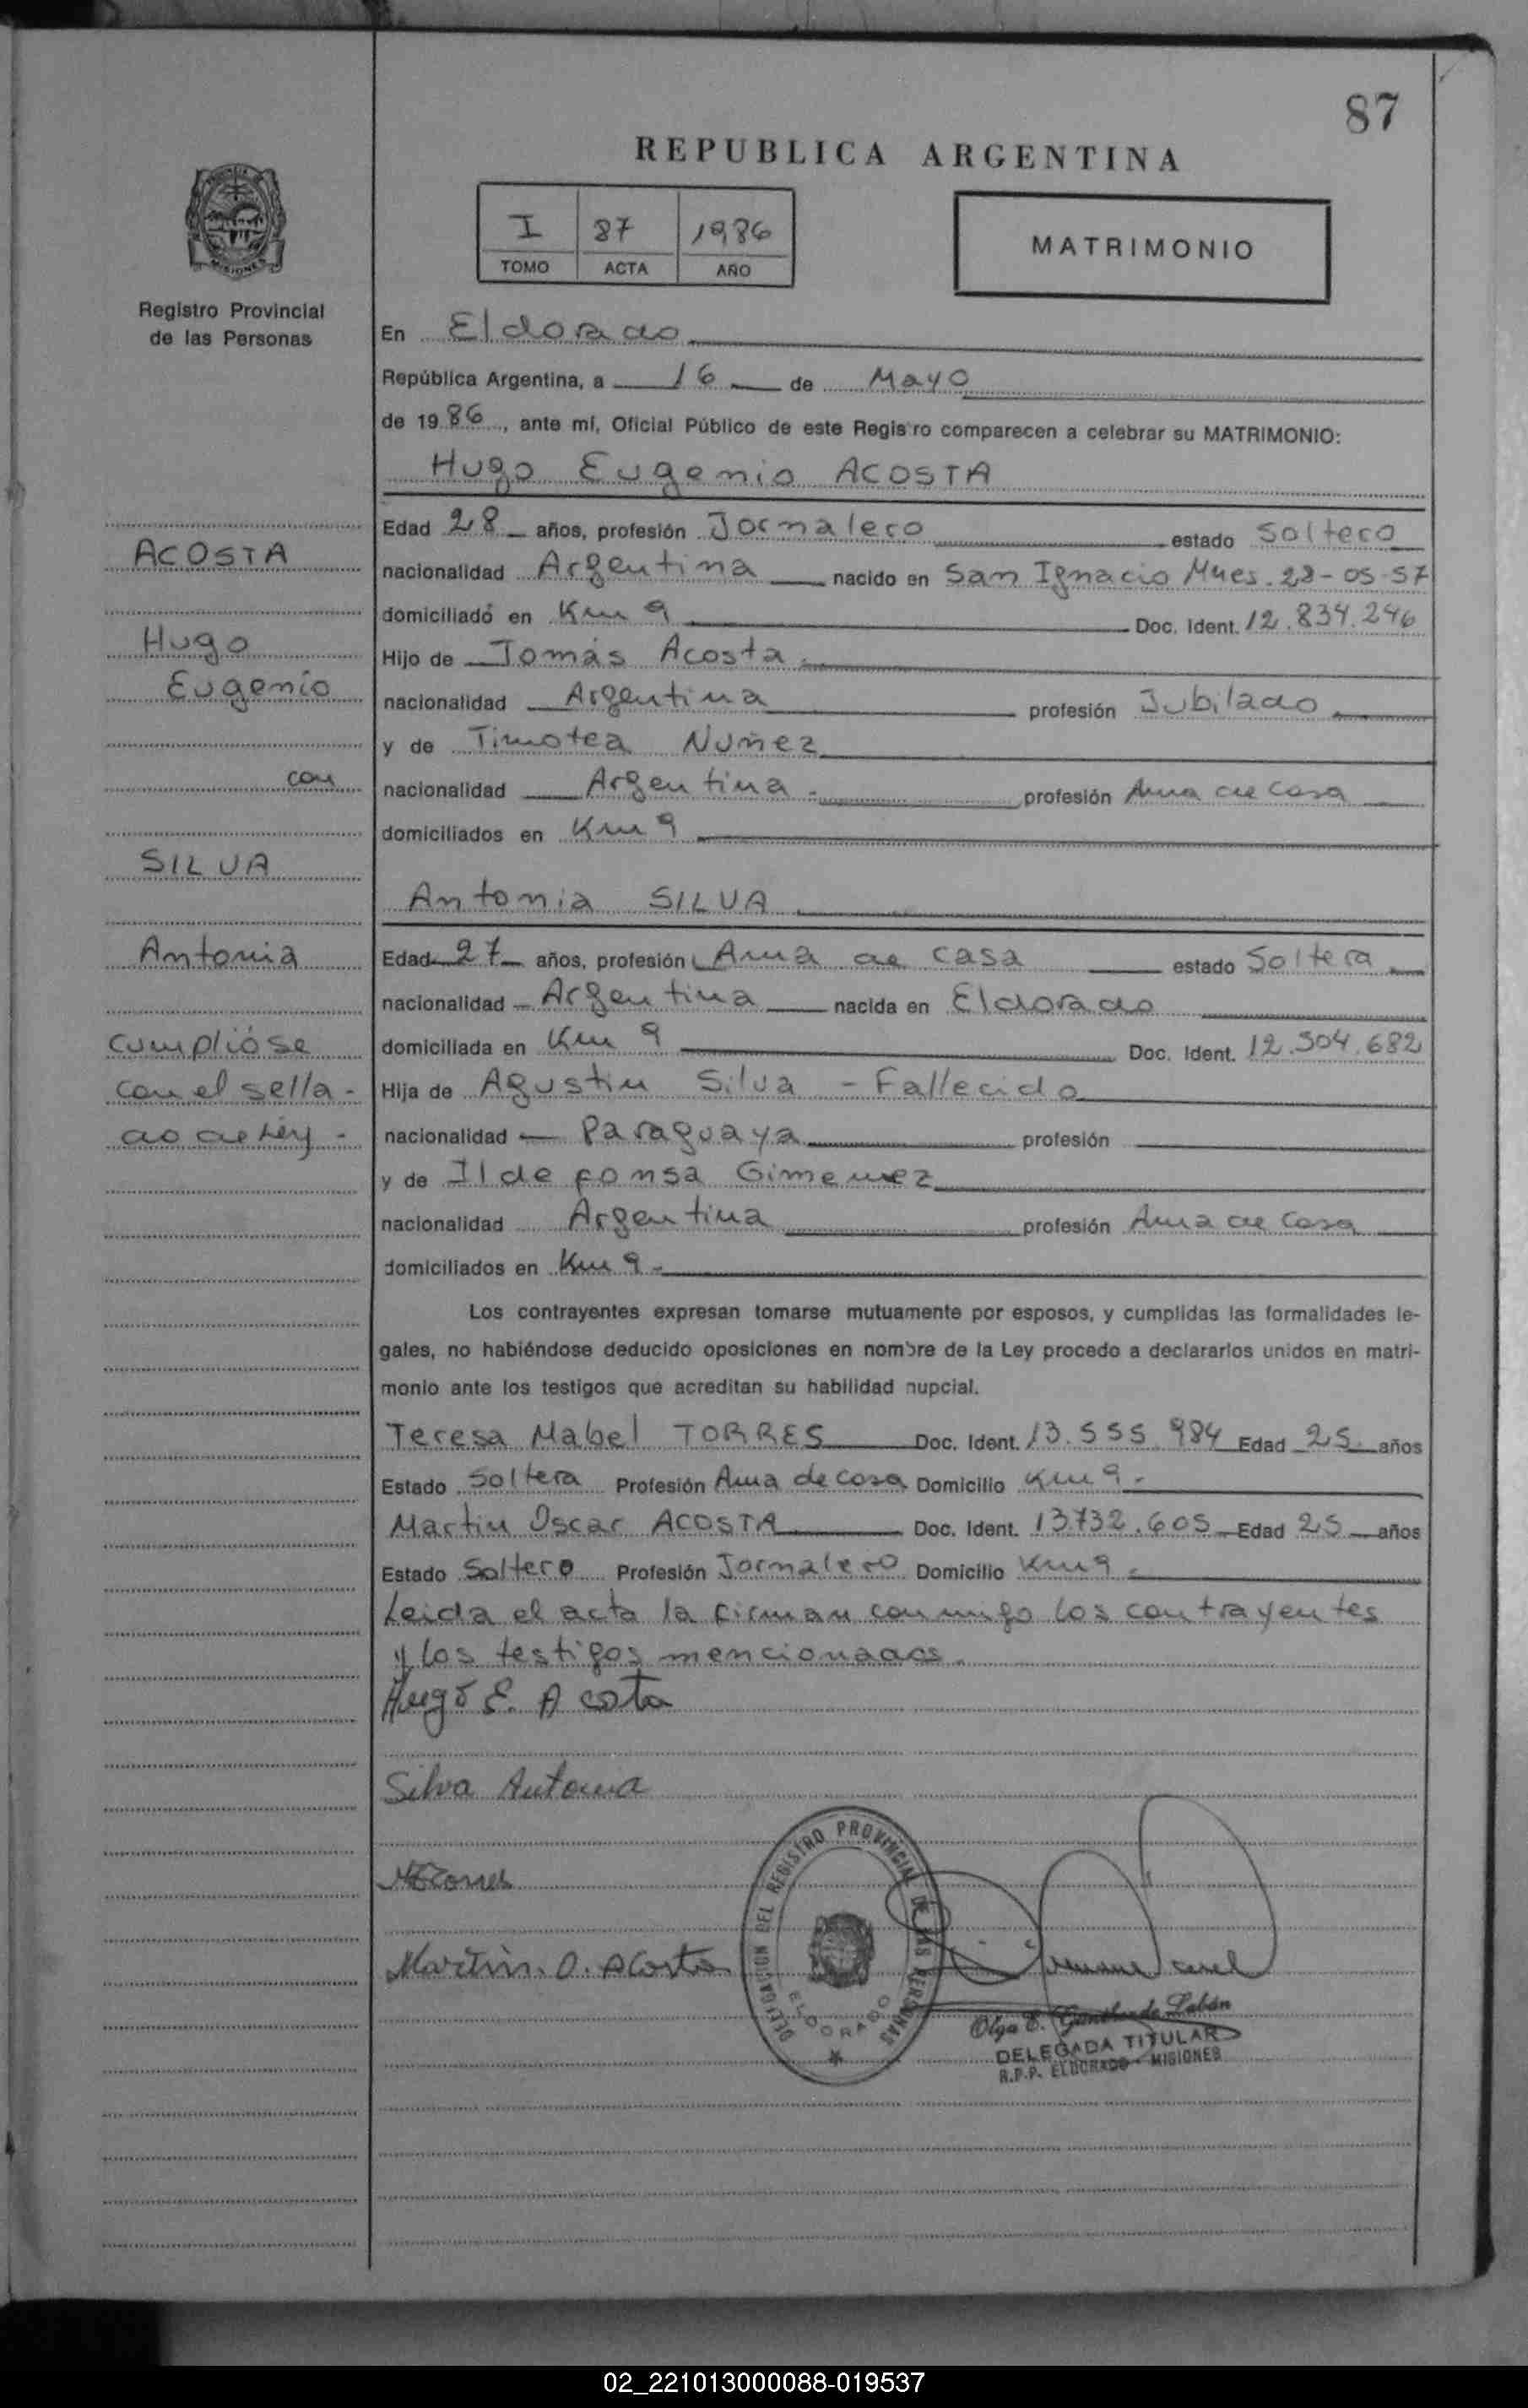 87
REPUBLICA ARGENTINA
I 87 1986
TOMO ACTA AÑO
MATRIMONIO
MISIONES
Registro Provincial
de las Personas
En Eldorado
República Argentina, a 16 de Mayo
de 1986, ante mí, Oficial Público de este Registro comparecen a celebrar su MATRIMONIO:
Hugo Eugenio ACOSTA
Edad 28 años, profesión Jornalero estado Soltero
nacionalidad Argentina nacido en San Ignacio Mnes. 28-05-57
domiciliado en Km 9 Doc. Ident. 12.834.246
Hijo de Tomás Acosta
nacionalidad Argentina profesión Jubilado
y de Timotea Nuñez
nacionalidad Argentina profesión Ama de Casa
domiciliados en Km 9
Antonia SILVA
Edad 27 años, profesión Ama de casa estado Soltera
nacionalidad Argentina nacida en Eldorado
domiciliada en Km 9 Doc. Ident. 12.504.682
Hija de Agustin Silva - Fallecido
nacionalidad Paraguaya profesión
y de Ildefonsa Gimenez
nacionalidad Argentina profesión Ama de Casa
domiciliados en Km 9
Los contrayentes expresan tomarse mutuamente por esposos, y cumplidas las formalidades le-
gales, no habiéndose deducido oposiciones en nombre de la Ley procedo a declararlos unidos en matri-
monio ante los testigos que acreditan su habilidad nupcial.
Teresa Mabel TORRES Doc. Ident. 13.555.984 Edad 25 años
Estado Soltera Profesión Ama de casa Domicilio Km 9.
Martin Oscar ACOSTA Doc. Ident. 13.732.605 Edad 25 años
Estado Soltero Profesión Jornalero Domicilio Km 9
Leida el acta la firman conmigo los contrayentes
y los testigos mencionados.
Hugo E. Acota
Silva Antonia
Martin. O. Acosta
ACOSTA
Hugo
Eugenio
con
SILVA
Antonia
Cumplióse
con el sella-
do de Ley -
DELEGACION DEL REGISTRO PROVINCIAL DE LAS PERSONAS
ELDORADO
Olga E. de Labán
DELEGADA TITULAR
R.P.P. ELDORADO - MISIONES
02_221013000088-019537